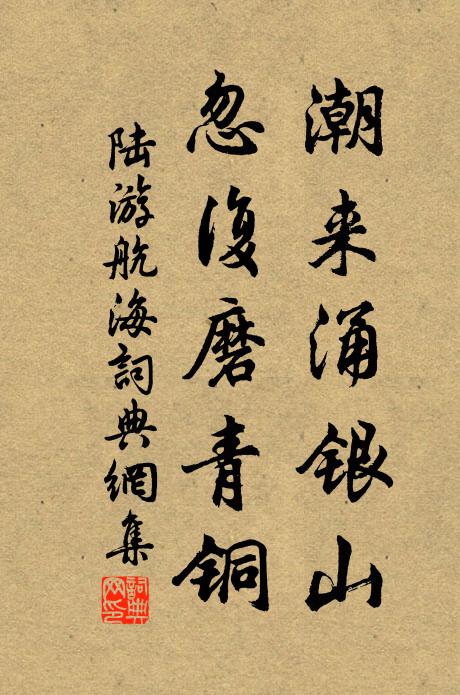 潮来涌银山
忽復磨青铜
陆游航海詞典網集
詞典网印